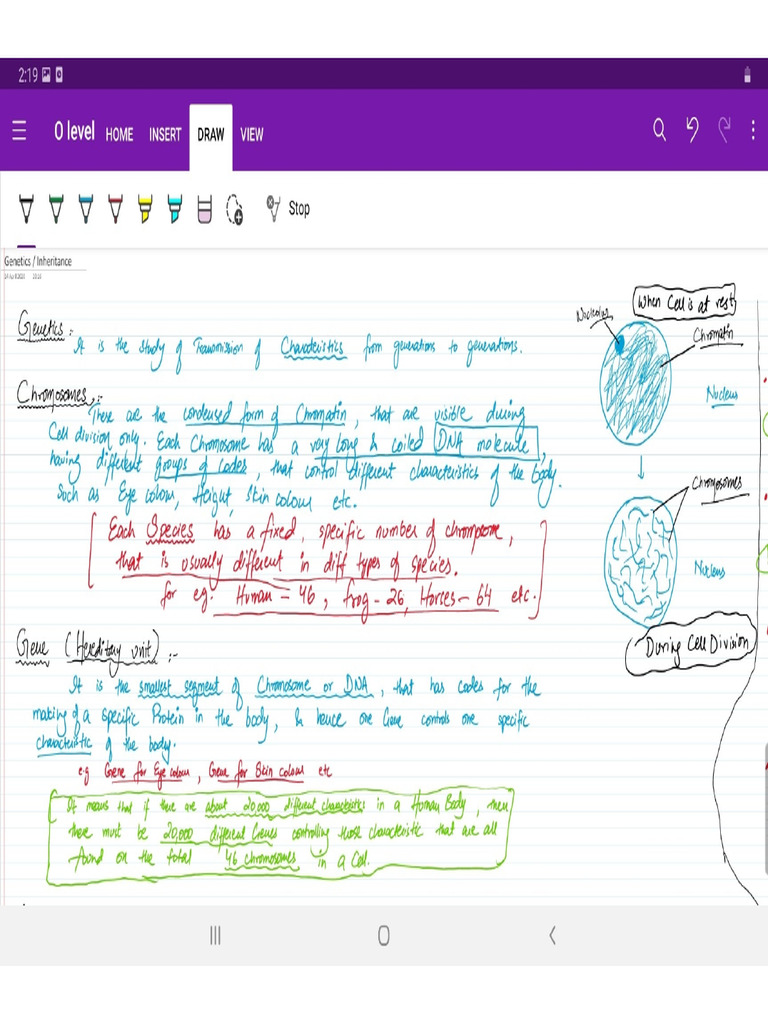 2:19
O level HOME INSERT DRAW VIEW
Stop
Genetics / Inheritance
Genetics:-
It is the study of Transmission of Characteristics from generations to generations.
Chromosomes:-
These are the condensed form of Chromatin, that are visible during
Cell division only. Each Chromosome has a very long & coiled DNA molecule,
having different groups of codes, that control different characteristics of the body.
Such as Eye colour, Height, Skin colour etc.
[Each Species has a fixed, specific number of chromosome,
that is usually different in diff types of species.
for eg: Human - 46, frog - 26, Horses - 64 etc.]
Gene (Hereditary unit) :-
It is the smallest segment of Chromosome or DNA, that has codes for the
making of a specific Protein in the body, & hence one Gene controls one specific
characteristic of the body.
e.g Gene for Eye colour, Gene for Skin colour etc
It means that if there are about 20,000 different characteristics in a Human Body, then
there must be 20,000 different Genes controlling those characteristic that are all
found on the total 46 chromosomes in a Cell.
When Cell is at rest
Nucleolus
Chromatin
Nucleus
Chromosomes
Nucleus
During Cell Division